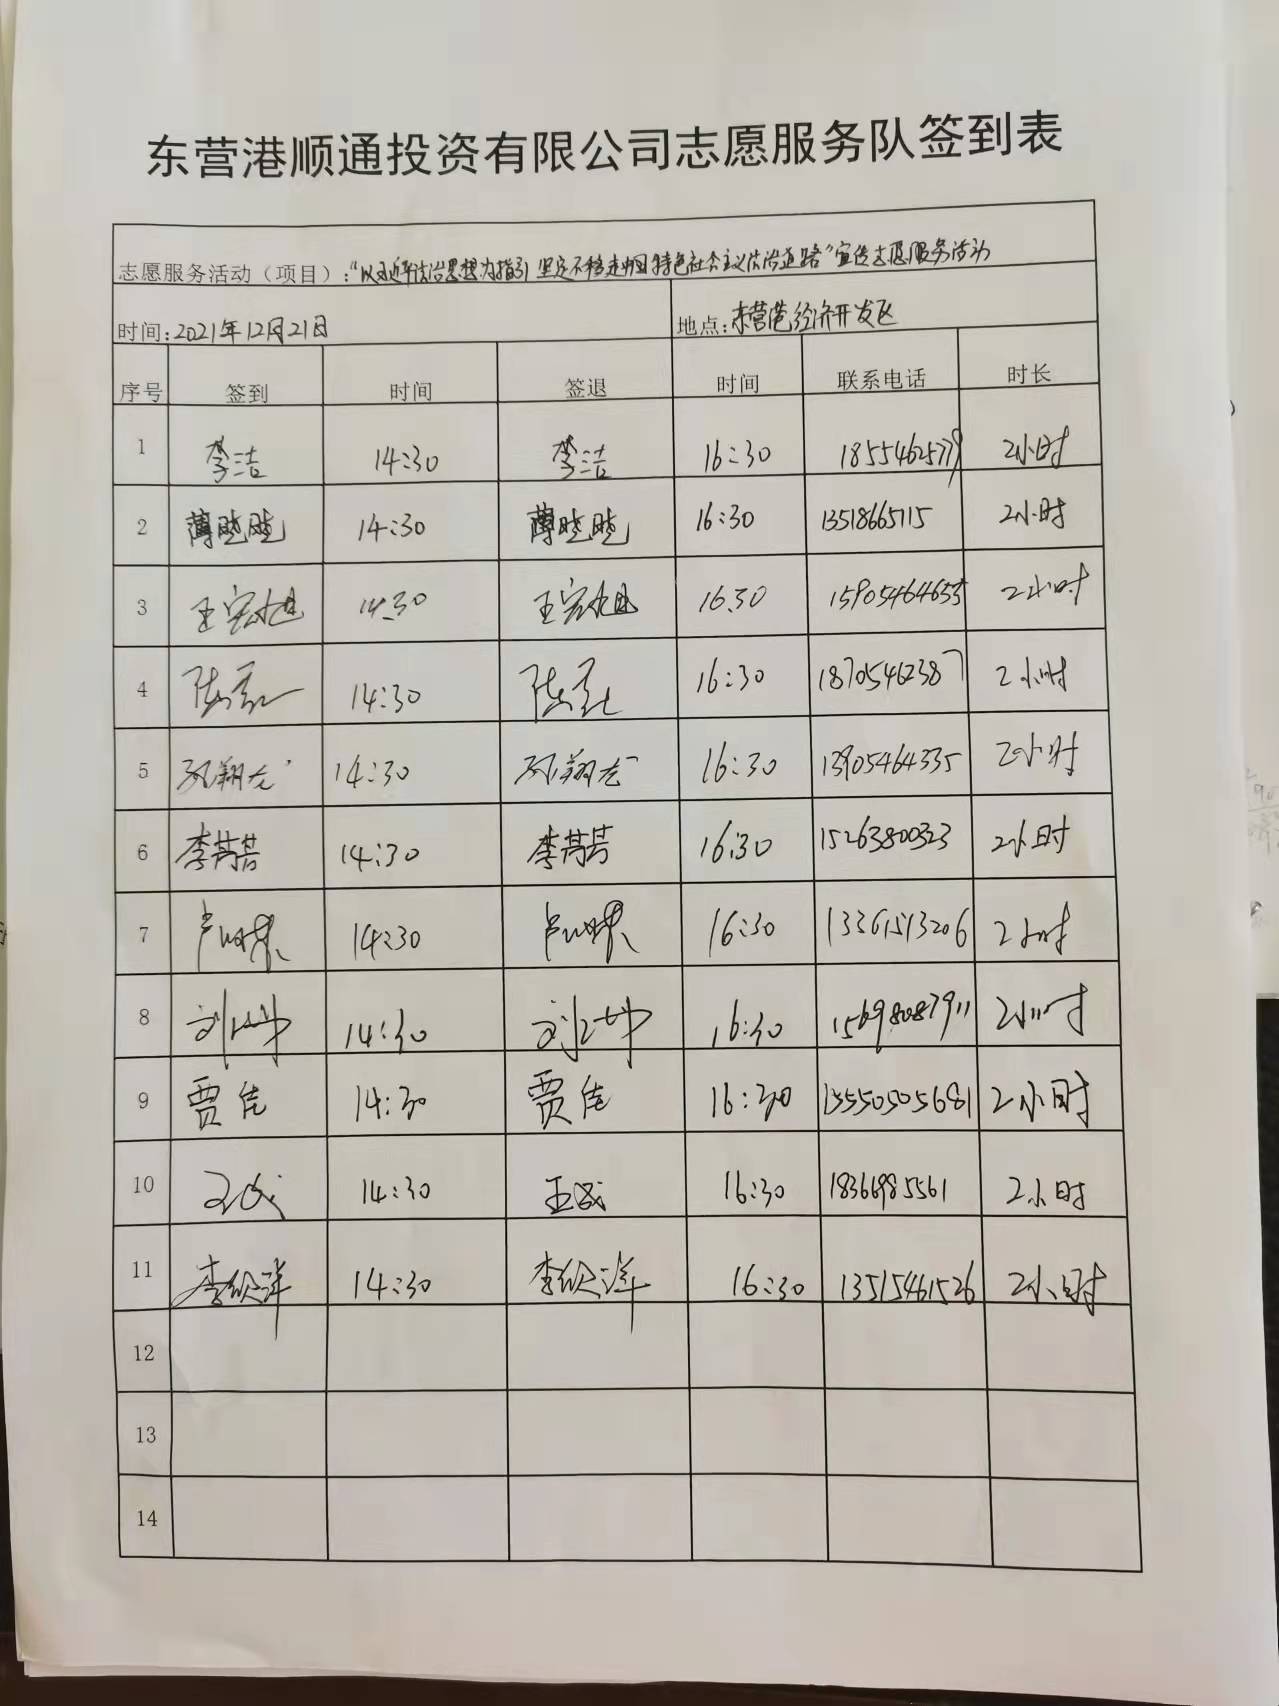 东营港顺通投资有限公司志愿服务队签到表
志愿服务活动（项目）：“以习近平法治思想为指引 坚定不移走中国特色社会主义法治道路”宣传志愿服务活动
时间：2021年12月21日 地点：东营港经济开发区
序号 签到 时间 签退 时间 联系电话 时长
1 李洁 14:30 李洁 16:30 18554625779 2小时
2 薄晓晓 14:30 薄晓晓 16:30 13518665115 2小时
3 王宏旭 14:30 王宏旭 16:30 15905464655 2小时
4 14:30 16:30 18705462387 2小时
5 孙翔龙 14:30 孙翔龙 16:30 13905464335 2小时
6 李芮芳 14:30 李芮芳 16:30 15263800323 2小时
7 14:30 16:30 13361513206 2小时
8 14:30 16:30 15698087911 2小时
9 贾佳 14:30 贾佳 16:30 15550505681 2小时
10 14:30 16:30 18366985561 2小时
11 李欣洋 14:30 李欣洋 16:30 13515461526 2小时
12
13
14